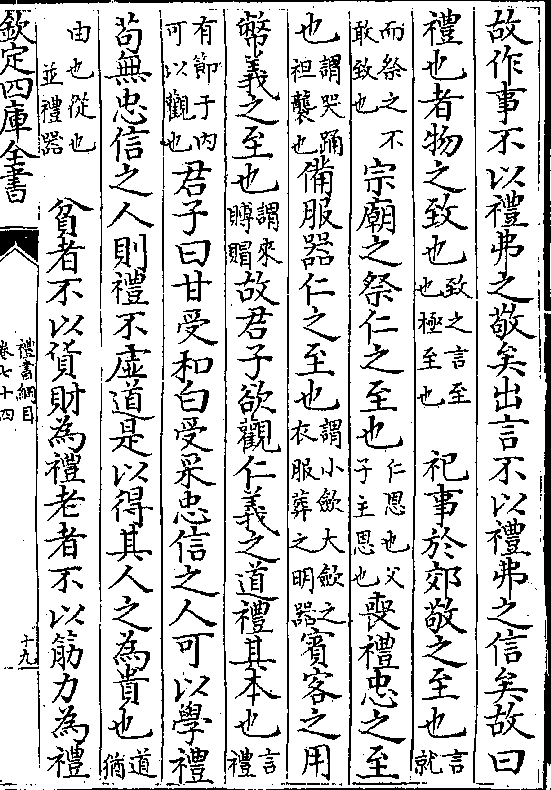 故作事不以禮弗之敬矣出言不以禮弗之信矣故曰
禮也者物之致也致之言至也極至也 祀事於郊敬之至也言就
而祭之不敢致也宗廟之祭仁之至也仁恩也父子主恩也喪禮忠之至
也謂哭踊袒襲也備服器仁之至也謂小斂大斂之衣服葬之明器賓客之用
幣義之至也謂來賻賵故君子欲觀仁義之道禮其本也言禮
有節于内可以觀也君子曰甘受和白受采忠信之人可以學禮
苟無忠信之人則禮不虛道是以得其人之為貴也道猶
由也從也 並禮器 貧者不以貨財為禮老者不以筋力為禮
欽定四庫全書
禮書綱目
卷七十四
十九